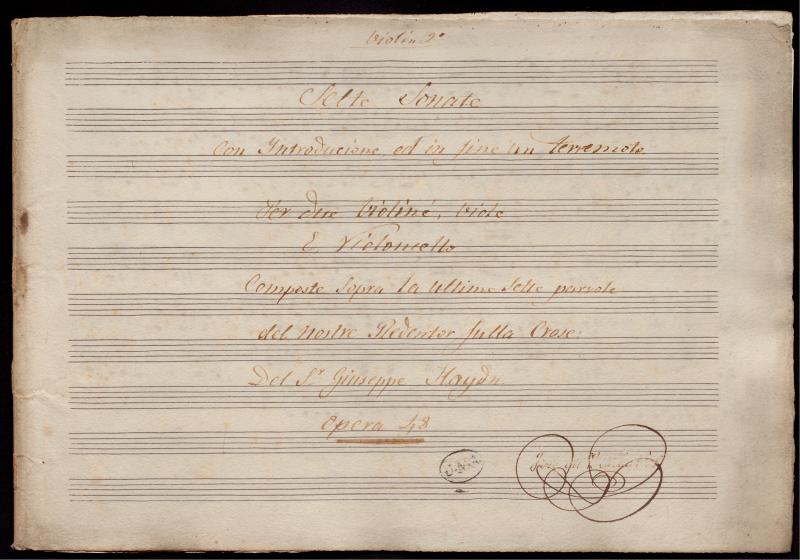 Violin 2º
Sette Sonate
Con Introducione, ed in fine un Terremoto
Per due Violine, Viole
E Violoncello
Composte Sopra la Ultime Sette parole
del nostre Redentor Sulla Crose.
Del Sr Giuseppe Haydn
Opera 48